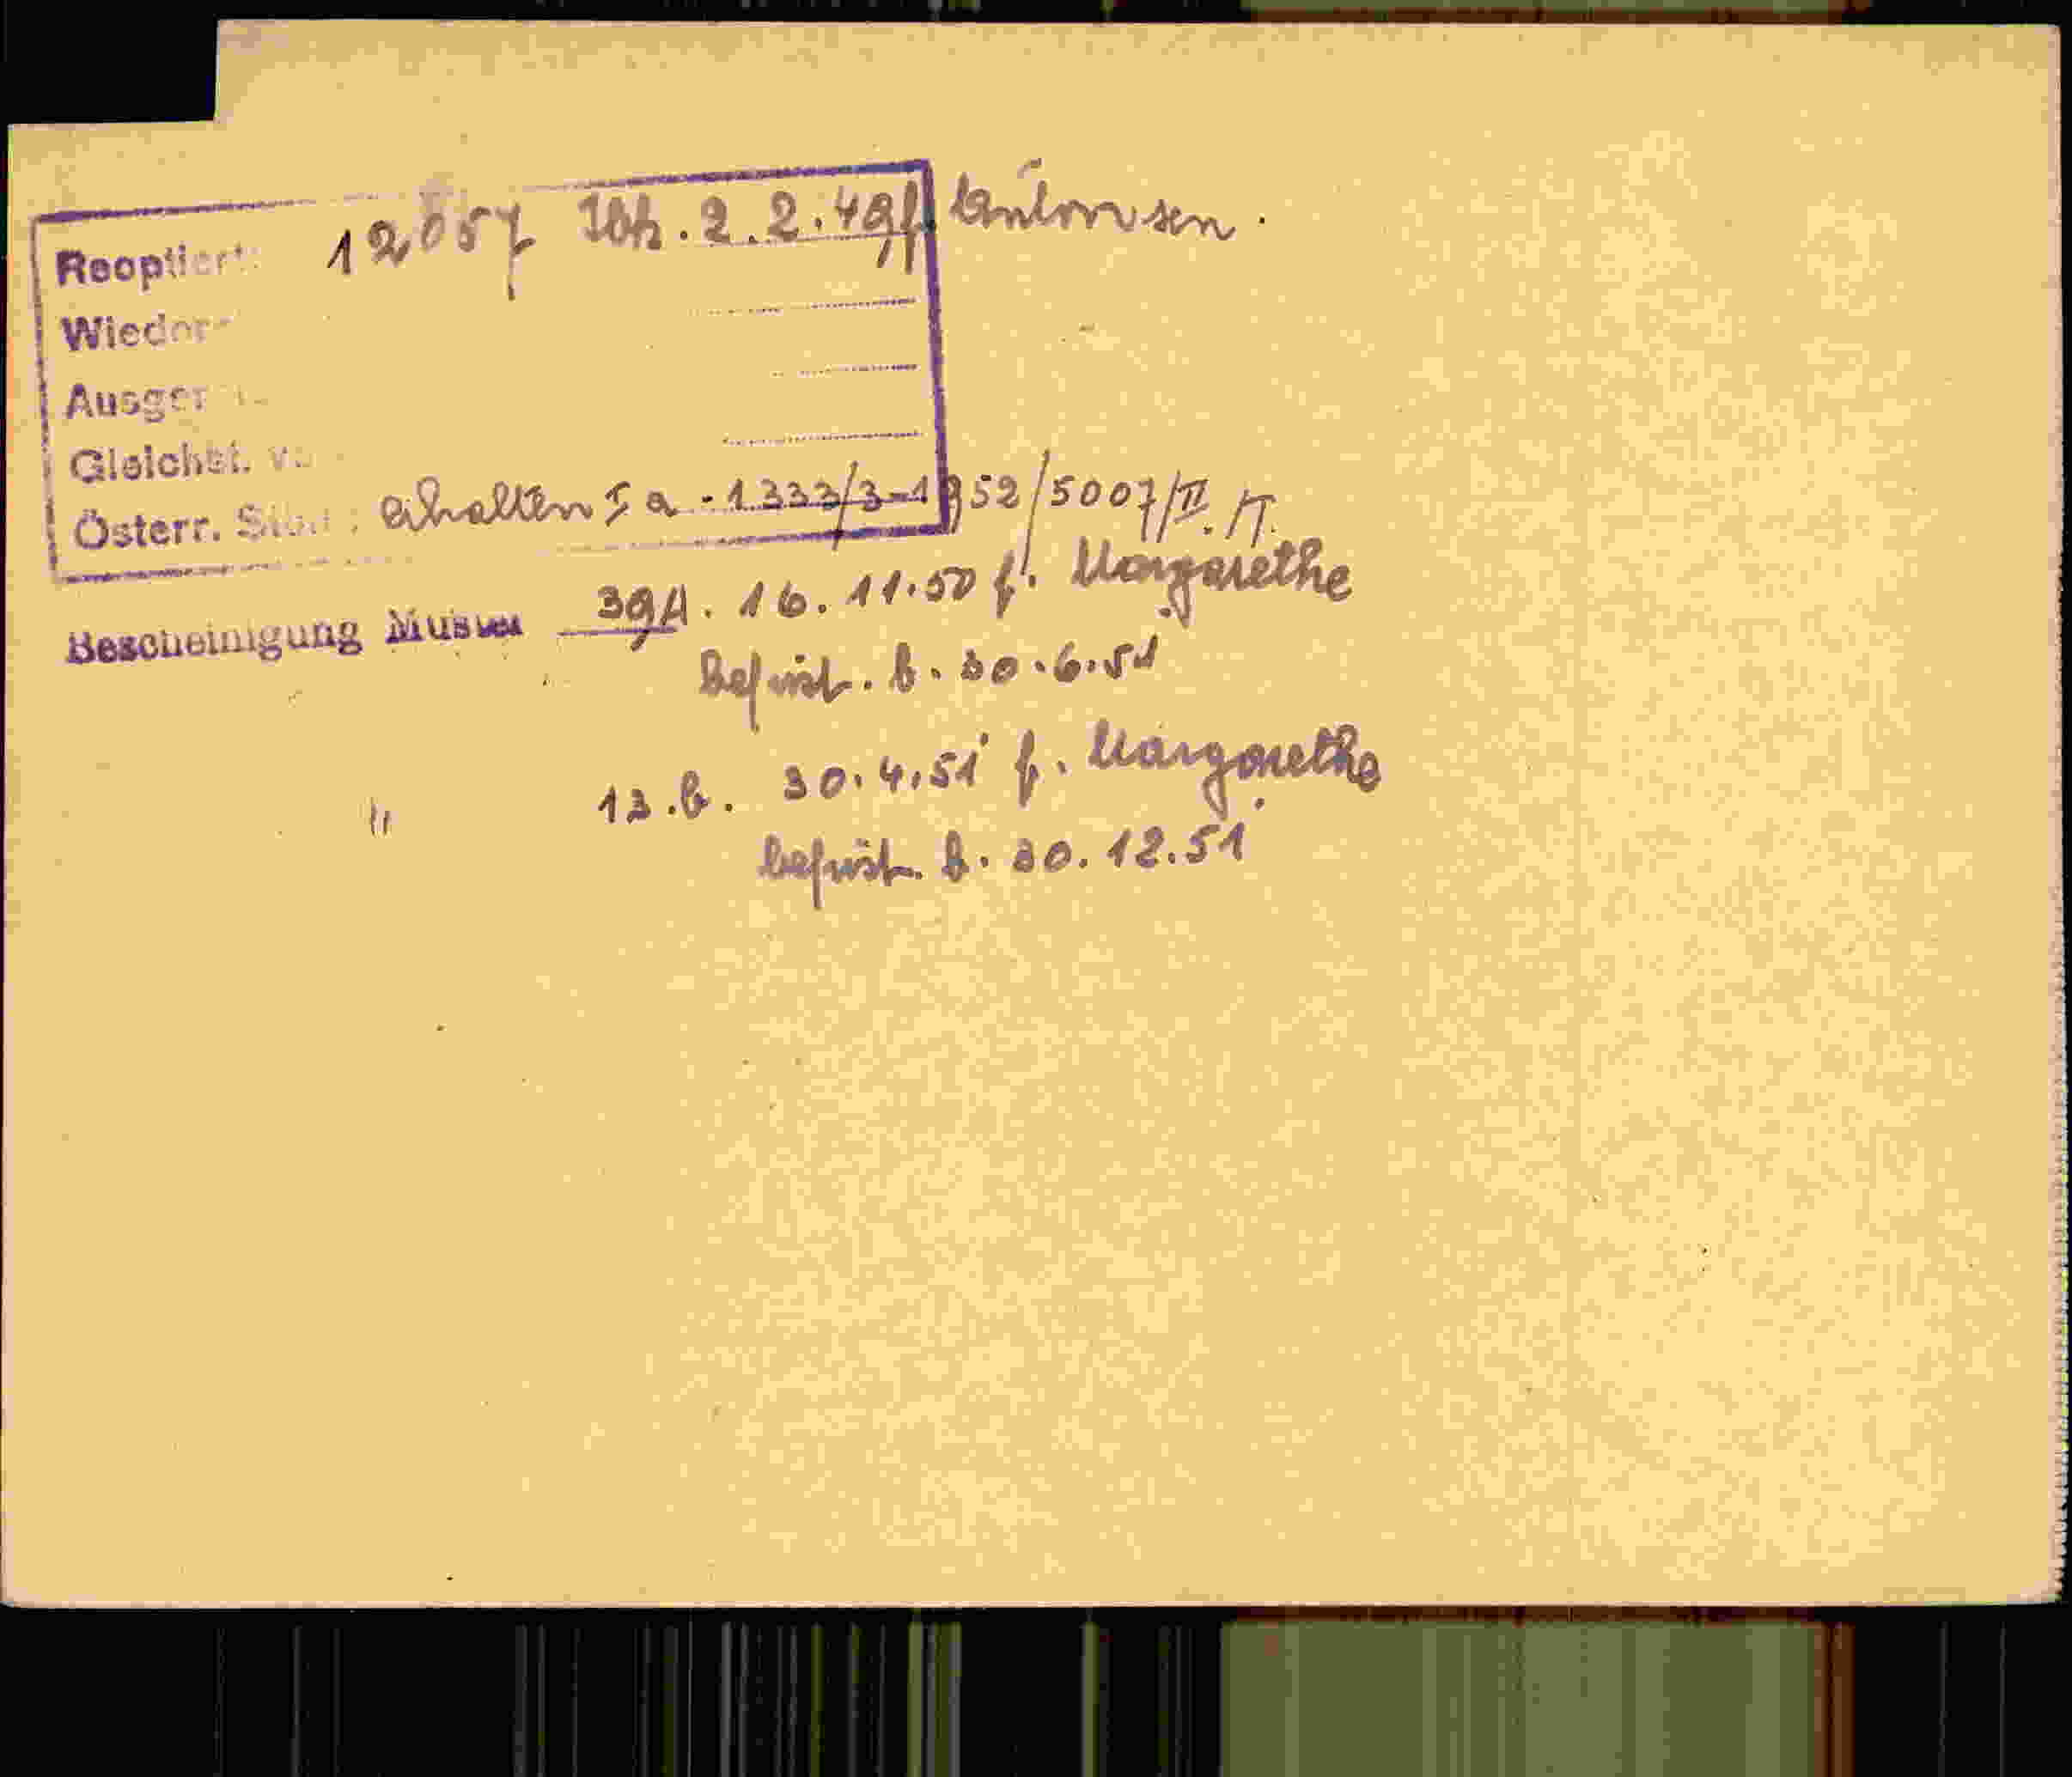 Reoptiert: 12057 Ibk. 2.2.49 f. Anton sen.
Wieder
Ausger
Gleichst. v.
Österr. St : erhalten I a - 1333/3-1952/5007/II./T.
Bescheinigung Muster 39A. 16.11.50 f. Margarethe
befrist. b. 30.6.51
" 13.b. 30.4.51 f. Margarethe
befrist. b. 30.12.51